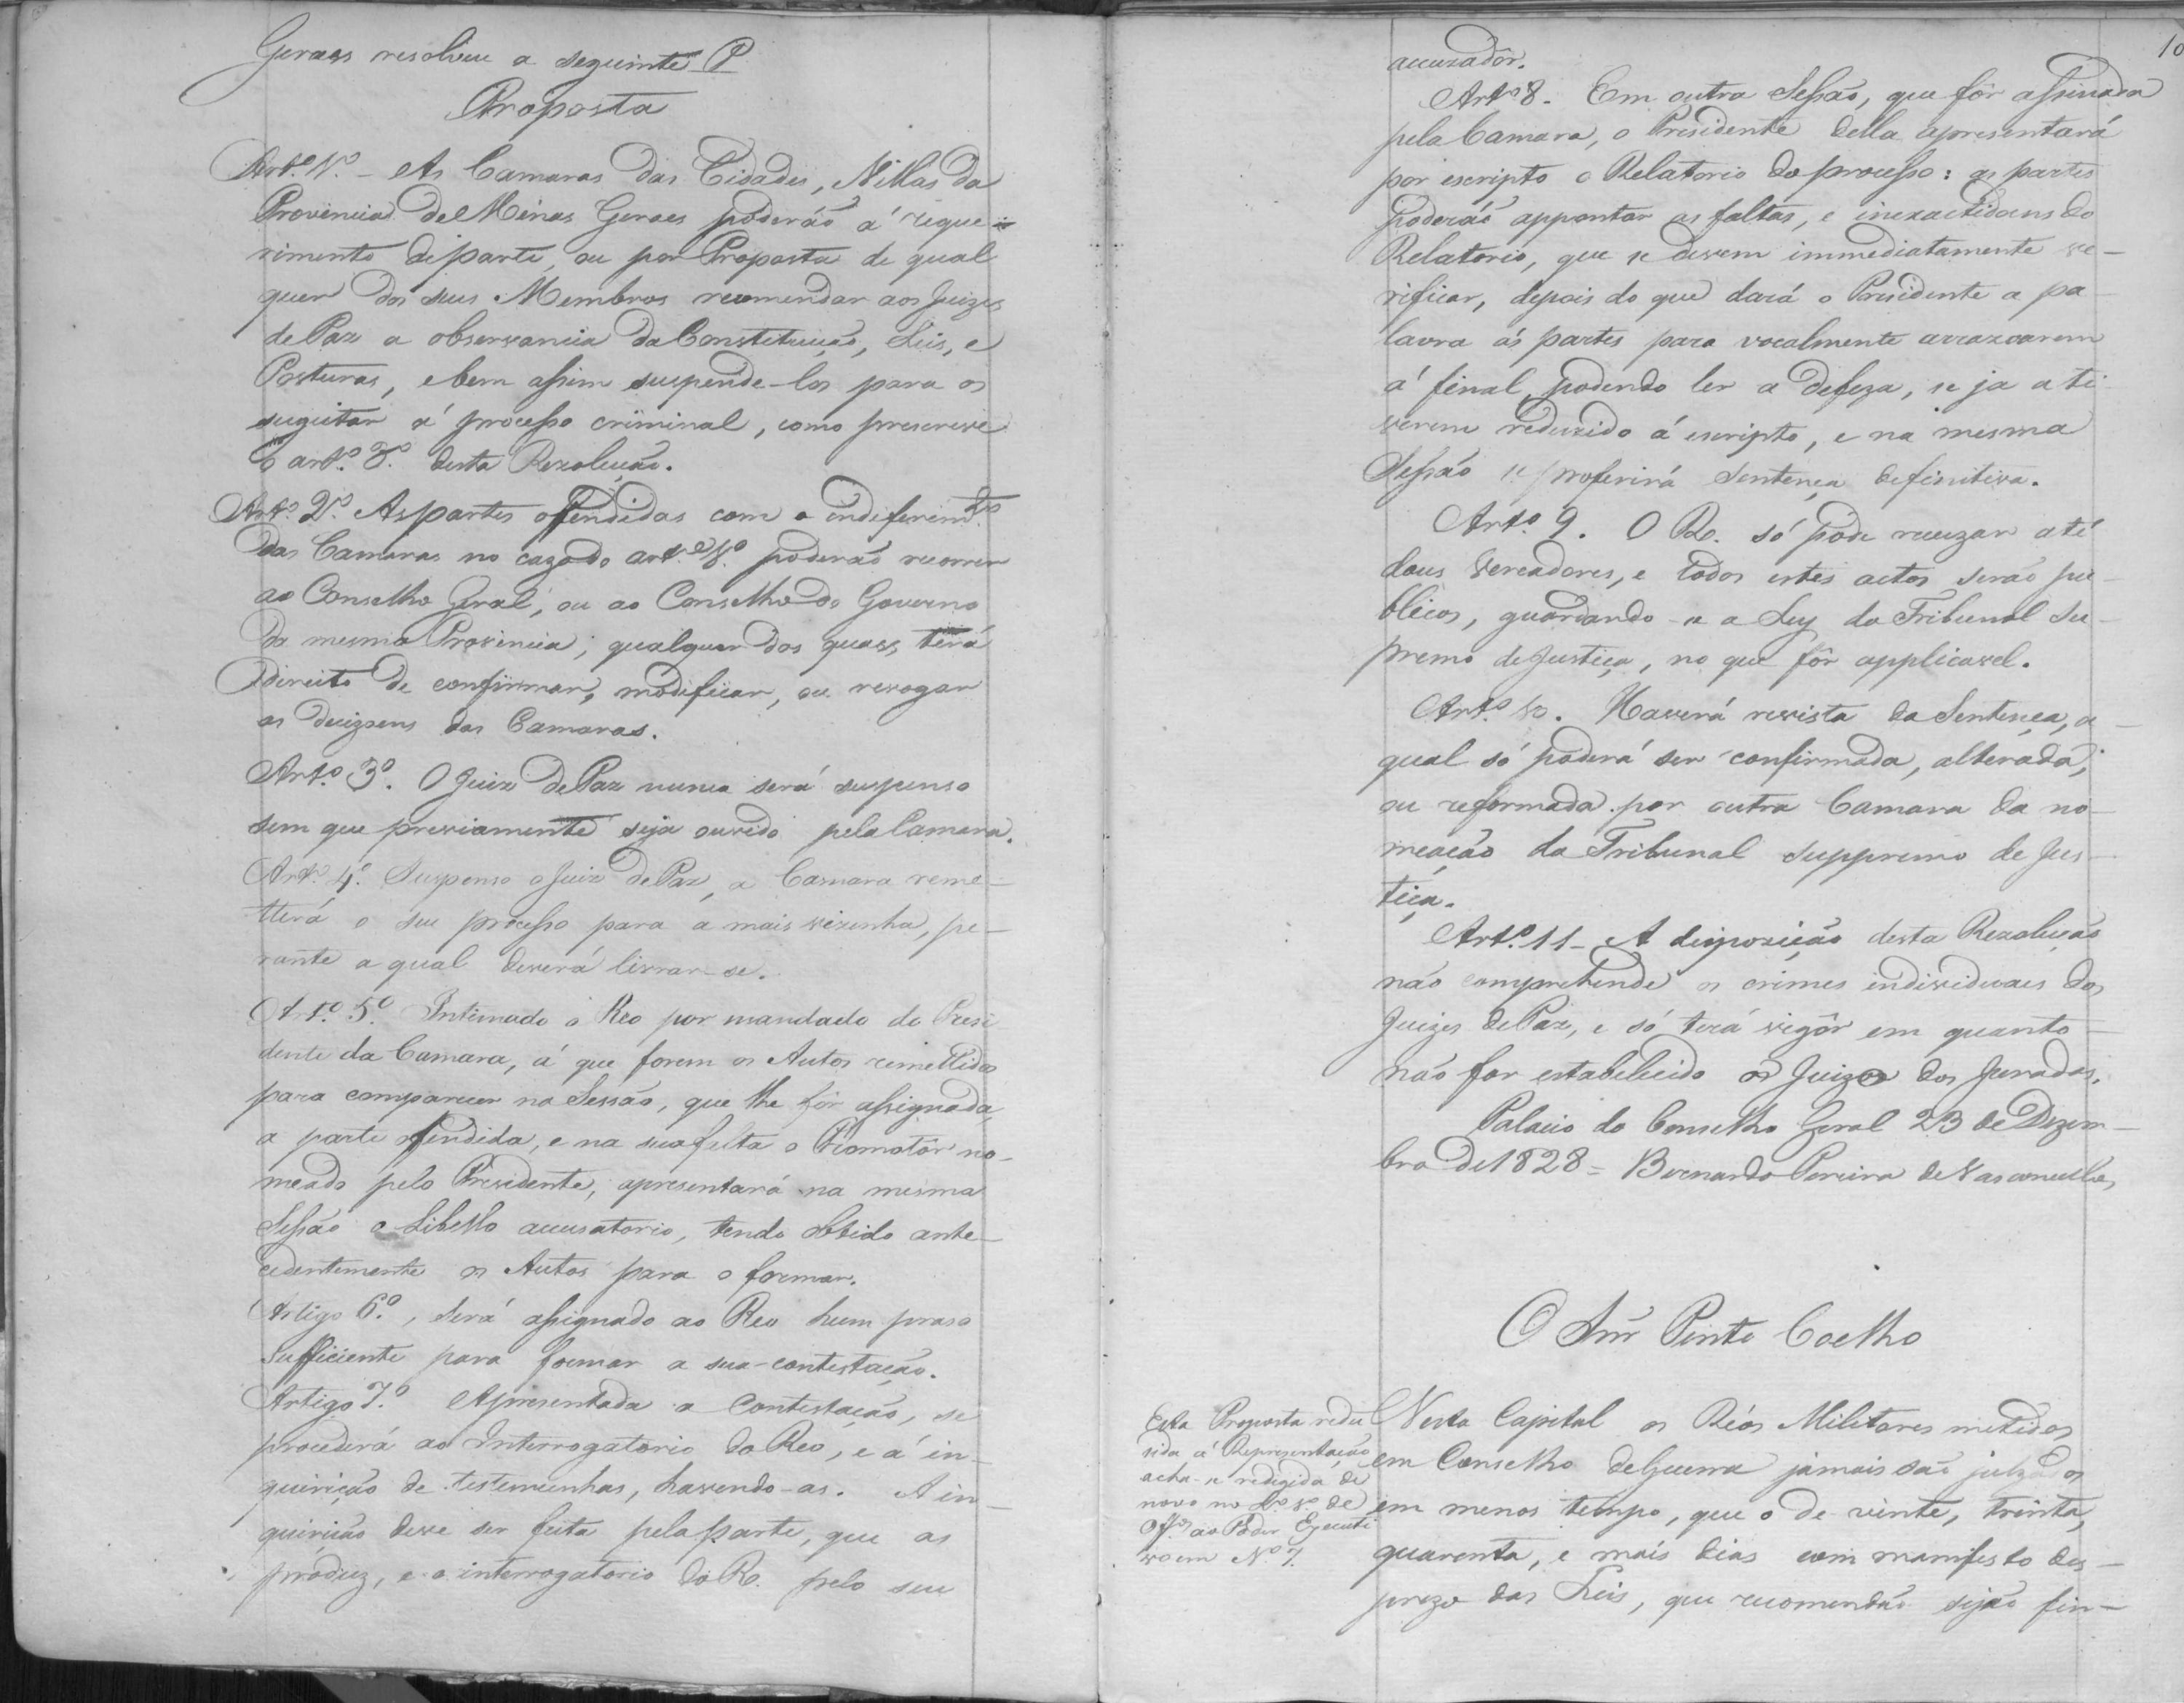 Geraes resolveu a seguinte P
Proposta
Art.º 1º. - As Camaras das Cidades, Villas da
Provincia de Minas Geraes poderáõ á reque-
rimento de parte, ou por Proposta de qual
quer dos seus Membros recomendar aos Juizes
de Paz a observancia da Constituiçaõ, Leis, e
Posturas, e bem assim suspende-los para os
sugeitar á processo criminal, como prescreve
o art.º 3º. desta Rezoluçaõ.
Art.º 2º. As partes offendidas com o indeferim.to
das Camaras no cazo do art.º 1º. poderaõ recorrer
ao Conselho Geral, ou ao Conselho do Governo
da mesma Provincia; qualquer dos quaes terá
direito de confirmar, modificar, ou revogar
as decizoens das Camaras.
Art.º 3º. O Juiz de Paz nunca será suspenso
sem que previamente seja ouvido pela Camara.
Art.º 4º. Suspenso o Juiz de Paz, a Camara reme-
tterá o seu processo para a mais vizinha, pe-
rante a qual deverá livrar-se.
Art.º 5º. Intimado o Reo por mandado do Presi
dente da Camara, á que forem os Autos remettidos
para comparecer na Sessão, que lhe fôr assignada,
a parte offendida, e na sua falta o Promotôr no-
meado pelo Presidente, apresentará na mesma
Sessaõ o Libello accusatorio, tendo obtido ante-
cedentemente os Autos para o formar.
Artigo 6º., Será assignado ao Reo hum praso
sufficiente para formar a sua contestaçaõ.
Artigo 7º. Apresentada a Contestaçaõ, se
procederá ao Interrogatorio do Reo, e á in-
quiriçaõ de testemunhas, havendo-as. A in-
quiriçaõ deve ser feita pela parte, que as
produz, e o interrogatorio do R. pelo seu
10
accuzadôr.
Art.º 8. Em outra Sessaõ, que fôr assinada
pela Camara, o Presidente della apresentará
por escripto o Relatorio do processo: as partes
poderáõ appontar as faltas, e inexactidoens do
Relatorio, que se devem immediatamente ve-
rificar, depois do que dará o Presidente a pa
lavra ás partes para vocalmente arrazoarem
a' final, podendo ler a defeza, se ja a ti
verem reduzido á escripto, e na mesma
Sessaõ se proferirá Sentença definitiva.
Art.º 9. O R. só póde recuzar até
dous Vereadores, e todos estes actos seraõ pu-
blicos, guardando-se a Ley do Tribunal Su-
premo de Justiça, no que fôr applicavel.
Art.º 10. Haverá revista da Sentença, a
qual só poderá ser confirmada, alterada,
ou reformada por outra Camara da no-
meaçaõ do Tribunal suppremo de Jus-
tiça.
Art.º 11 - A disposiçaõ desta Rezoluçaõ
naõ comprehende os crimes individuaes dos
Juizes de Paz, e só terá vigôr em quanto
naõ for estabelecido o Juizo dos Jurados.
Palacio do Conselho Geral 23 de Dezem-
bro de 1828 = Bernardo Pereira de Vasconcellos
O Snr Pinto Coelho
Esta Proposta redu
sida á Representaçaõ
acha-se redigida de
novo no L.º 1º. de
Off.os ao Poder Executi
vo em N.º 7.
Nesta Capital os Réos Militares metidos
em Conselho de Guerra jamais saõ julgados
em menos tempo, que o de vinte, trinta,
quarenta, e mais dias com manifesto des-
prezo das Leis, que recomendaõ sejaõ fin-